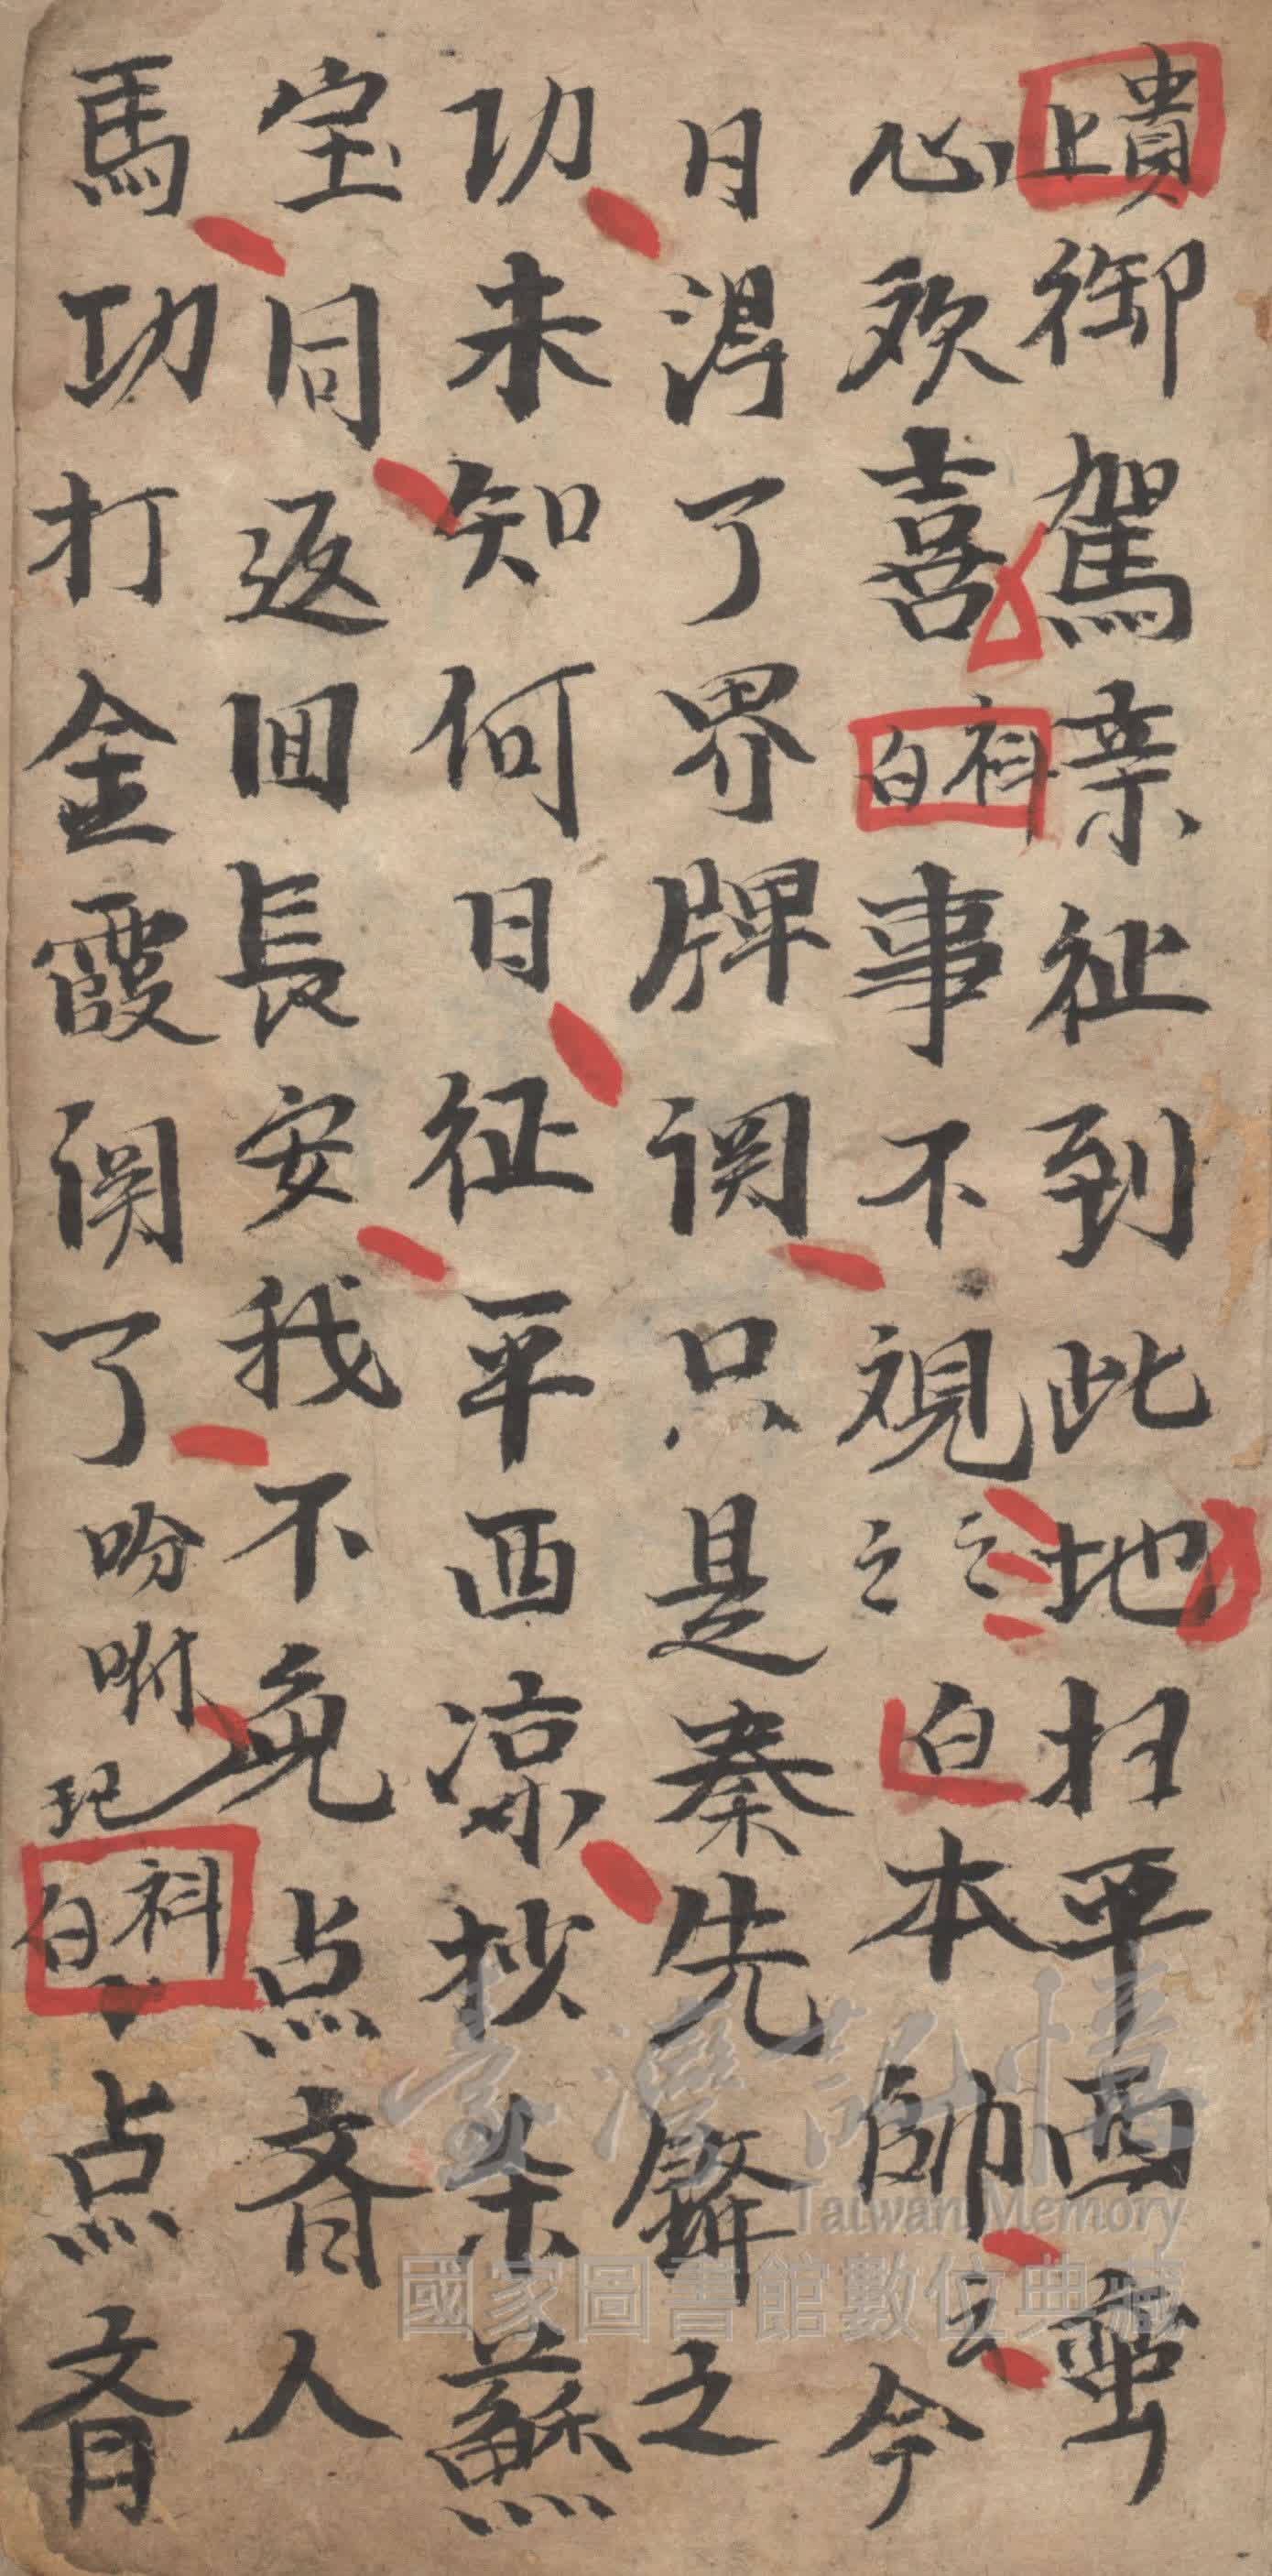 貴上御駕亲征到此地扫平西蛮
心欢喜科白事不視〻〻白本帥〻今
日得了界牌関只是秦先鋒之
功未知何日征平西凉抄朵蘇
宝同返回長安我不免点斉人
馬功打金霞関了吩咐𰀁科白点斉
臺灣記憶
Taiwan Memory
國家圖書館數位典藏